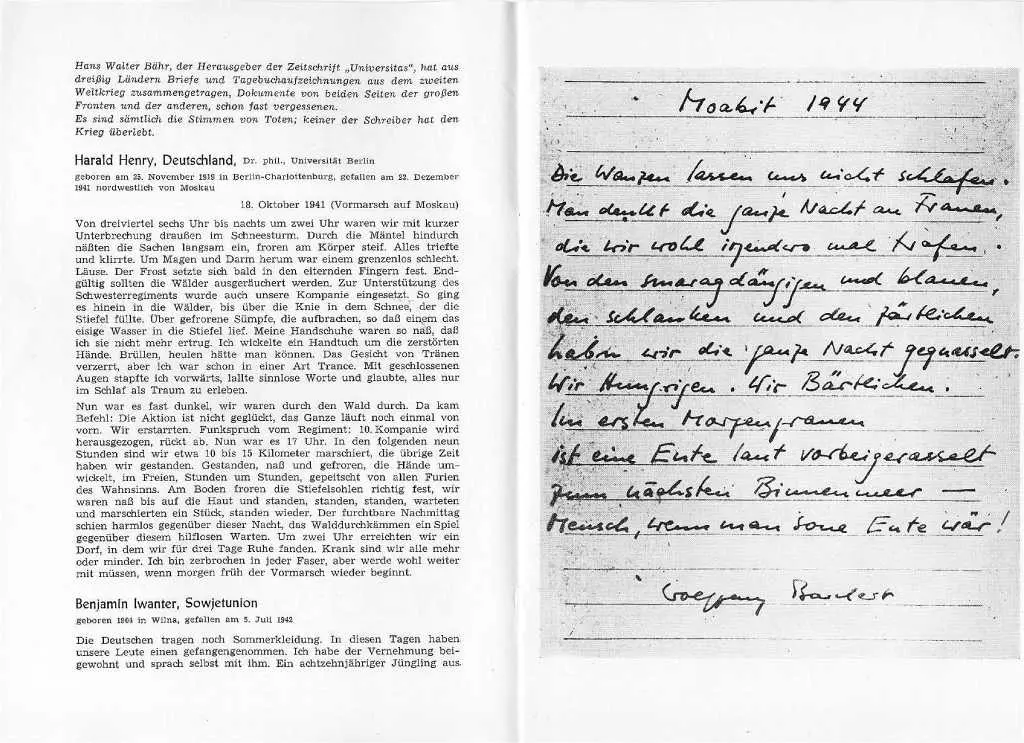 Hans Walter Bähr, der Herausgeber der Zeitschrift „Universitas“, hat aus
dreißig Ländern Briefe und Tagebuchaufzeichnungen aus dem zweiten
Weltkrieg zusammengetragen, Dokumente von beiden Seiten der großen
Fronten und der anderen, schon fast vergessenen.
Es sind sämtlich die Stimmen von Toten; keiner der Schreiber hat den
Krieg überlebt.
Harald Henry, Deutschland, Dr. phil., Universität Berlin
geboren am 25. November 1919 in Berlin-Charlottenburg, gefallen am 22. Dezember
1941 nordwestlich von Moskau
18. Oktober 1941 (Vormarsch auf Moskau)
Von dreiviertel sechs Uhr bis nachts um zwei Uhr waren wir mit kurzer
Unterbrechung draußen im Schneesturm. Durch die Mäntel hindurch
näßten die Sachen langsam ein, froren am Körper steif. Alles triefte
und klirrte. Um Magen und Darm herum war einem grenzenlos schlecht.
Läuse. Der Frost setzte sich bald in den eiternden Fingern fest. End-
gültig sollten die Wälder ausgeräuchert werden. Zur Unterstützung des
Schwesterregiments wurde auch unsere Kompanie eingesetzt. So ging
es hinein in die Wälder, bis über die Knie in dem Schnee, der die
Stiefel füllte. Über gefrorene Sümpfe, die aufbrachen, so daß einem das
eisige Wasser in die Stiefel lief. Meine Handschuhe waren so naß, daß
ich sie nicht mehr ertrug. Ich wickelte ein Handtuch um die zerstörten
Hände. Brüllen, heulen hätte man können. Das Gesicht von Tränen
verzerrt, aber ich war schon in einer Art Trance. Mit geschlossenen
Augen stapfte ich vorwärts, lallte sinnlose Worte und glaubte, alles nur
im Schlaf als Traum zu erleben.
Nun war es fast dunkel, wir waren durch den Wald durch. Da kam
Befehl: Die Aktion ist nicht geglückt, das Ganze läuft noch einmal von
vorn. Wir erstarrten. Funkspruch vom Regiment: 10. Kompanie wird
herausgezogen, rückt ab. Nun war es 17 Uhr. In den folgenden neun
Stunden sind wir etwa 10 bis 15 Kilometer marschiert, die übrige Zeit
haben wir gestanden. Gestanden, naß und gefroren, die Hände um-
wickelt, im Freien, Stunden um Stunden, gepeitscht von allen Furien
des Wahnsinns. Am Boden froren die Stiefelsohlen richtig fest, wir
waren naß bis auf die Haut und standen, standen, standen, warteten
und marschierten ein Stück, standen wieder. Der furchtbare Nachmittag
schien harmlos gegenüber dieser Nacht, das Walddurchkämmen ein Spiel
gegenüber diesem hilflosen Warten. Um zwei Uhr erreichten wir ein
Dorf, in dem wir für drei Tage Ruhe fanden. Krank sind wir alle mehr
oder minder. Ich bin zerbrochen in jeder Faser, aber werde wohl weiter
mit müssen, wenn morgen früh der Vormarsch wieder beginnt.
Benjamin Iwanter, Sowjetunion
geboren 1904 in Wilna, gefallen am 5. Juli 1942
Die Deutschen tragen noch Sommerkleidung. In diesen Tagen haben
unsere Leute einen gefangengenommen. Ich habe der Vernehmung bei-
gewohnt und sprach selbst mit ihm. Ein achtzehnjähriger Jüngling aus
Moabit 1944
Die Wanzen lassen uns nicht schlafen.
Man denkt die ganze Nacht an Frauen,
die wir wohl irgendwo mal trafen.
Von den smaragdäugigen und blauen,
den schlanken und den zärtlichen
haben wir die ganze Nacht gequasselt.
Wir Hungrigen. Wir Bärtlichen.
Im ersten Morgengrauen
ist eine Ente laut vorbeigerasselt
zum nächsten Binnenmeer —
Mensch, wenn man sone Ente wär!
Wolfgang Borchert